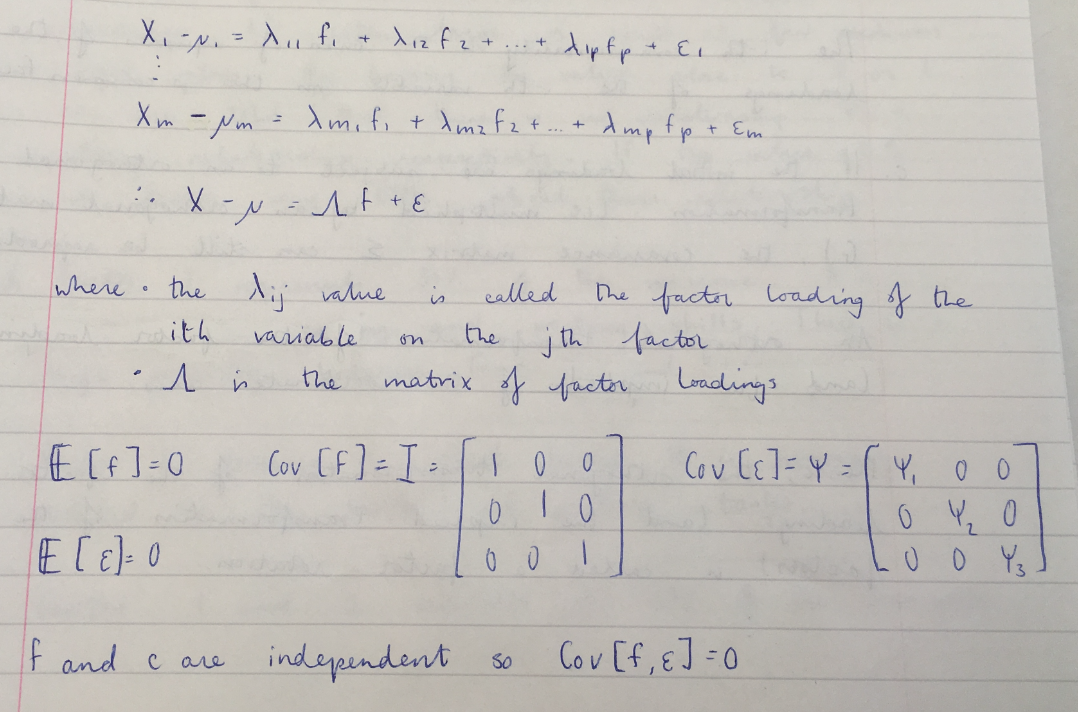 X₁ - μ₁ = λ₁₁ f₁ + λ₁₂ f₂ + ... + λ₁ₚ fₚ + ε₁
⋮
Xₘ - μₘ = λₘ₁ f₁ + λₘ₂ f₂ + ... + λₘₚ fₚ + εₘ
∴ X - μ = Λ f + ε
where • the λᵢⱼ value is called the factor loading of the
ith variable on the jth factor
• Λ is the matrix of factor loadings
𝔼[f] = 0 Cov [f] = I = [1 0 0; 0 1 0; 0 0 1] Cov [ε] = Ψ = [Ψ₁ 0 0; 0 Ψ₂ 0; 0 0 Ψ₃]
𝔼[ε] = 0
f and ε are independent so Cov [f, ε] = 0